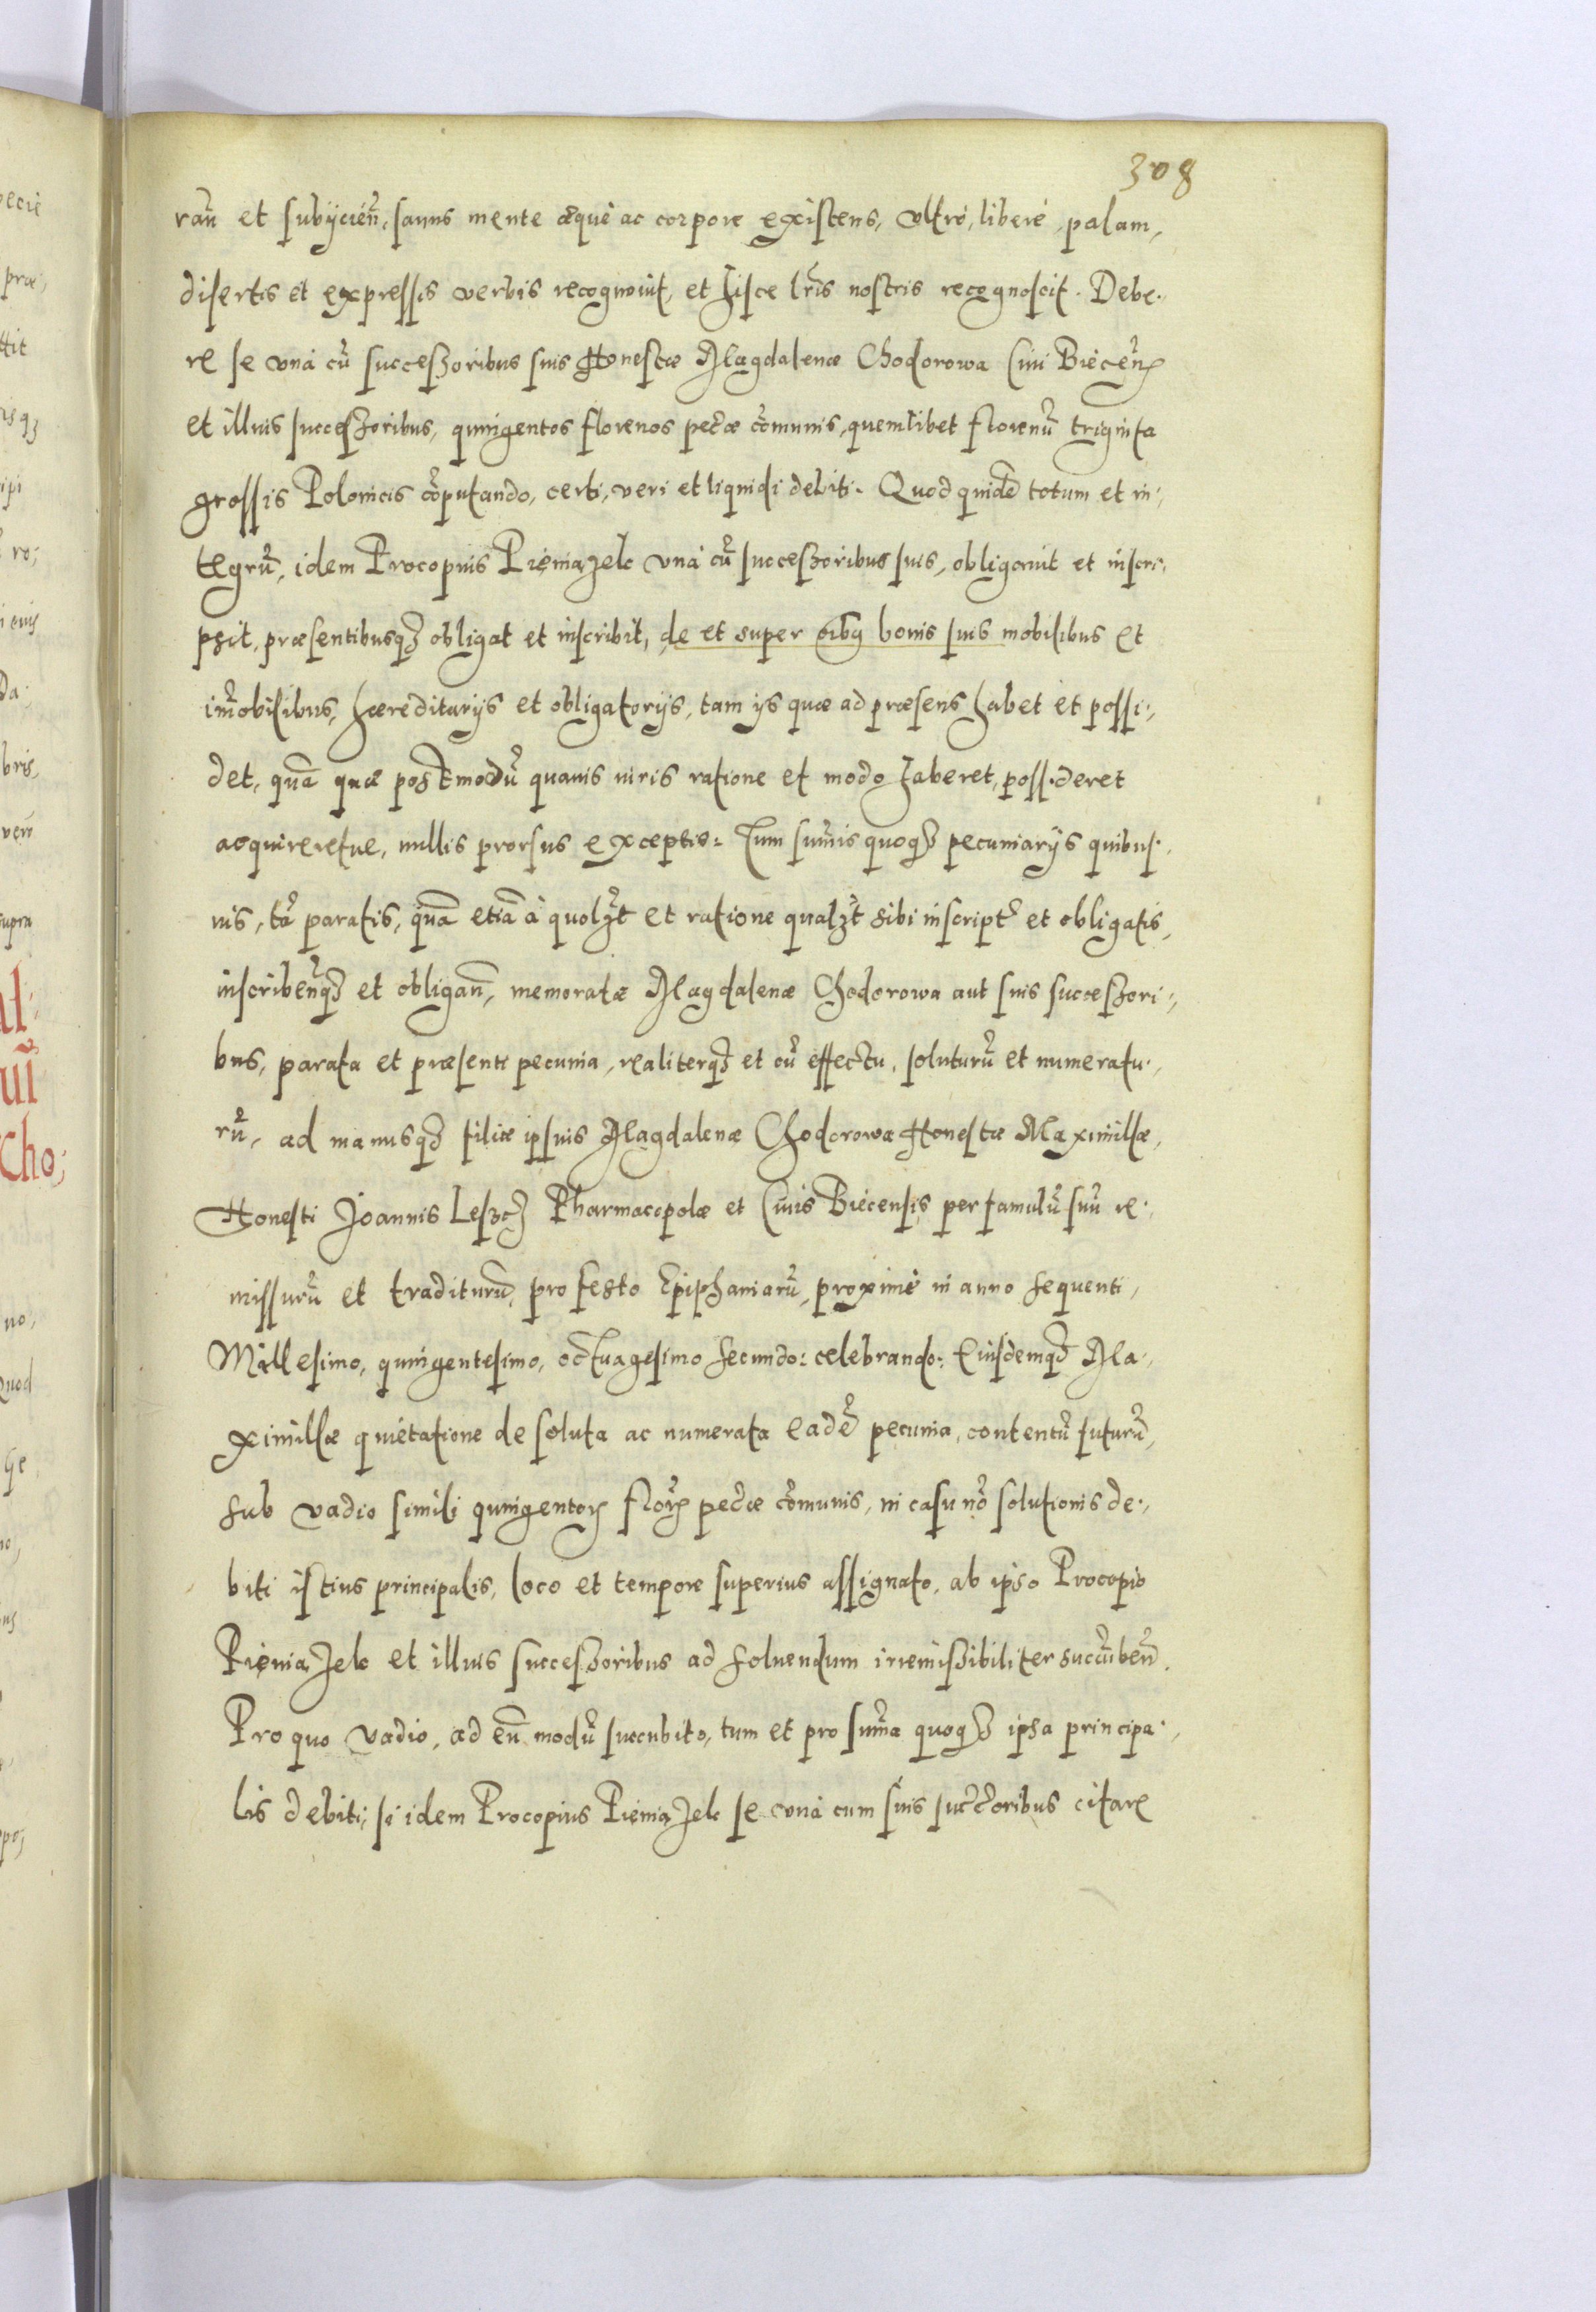 308
rañ et subijcieñ, sanus mente æque ac corpore existens, ultrò, liberè, palam,
disertis et expressis verbis recognouit, et hisce lr̃is nostris recognoscit. Debe-
re se vnà cũ successoribus suis Honestæ Magdalenæ Chodorowa Ciui Biecen̄
et illius successoribus, quingentos florenos pec̃æ cõmunis, quemlibet florenũ triginta
grossis Polonicis cõputando, certi, veri et liquidi debiti. Quod quidẽ totum et in-
tegrũ, idem Procopius Pieniążek vnà cũ successoribus suis, obligauit et inscri-
psit, præsentibusq3 obligat et inscribit, de et super oĩbus bonis suis mobilibus et
im̃obilibus, hæreditarijs et obligatorijs, tam ijs quæ ad præsens habet et possi-
det, quã quæ postmodũ quauis iuris ratione et modo haberet, possideret
acquireretue, nullis prorsus exceptis: Tum sum̃is quoq3 pecuniarijs quibus-
uis, tã paratis, quã etiã à quol3t et ratione qual3t sibi inscript̃ et obligatis,
inscribeñq3 et obligañ, memoratæ Magdalenæ Chodorowa aut suis successori-
bus, parata et præsenti pecunia, realiterq3 et cũ effectu, soluturũ et numeratu-
rũ, ad manusq3 filiæ ipsius Magdalenæ Chodorowa Honestæ Maximillæ,
Honesti Joannis Pharmacopolæ et Ciuis Biecensis per famulũ suũ re-
missurũ et traditurũ, pro festo Epiphaniarũ, proximè in anno sequenti,
Millesimo, quingentesimo, octuagesimo secundo: celebrando: Eiusdemq3 Ma-
ximillæ quietatione de soluta ac numerata eadẽ pecunia, contentũ futurũ,
sub vadio simili quingentor̃ flor̃ pec̃æ cõmunis, in casu nõ solutionis de-
biti istius principalis, loco et tempore superius assignato, ab ipso Procopio
Pieniążek et illius successoribus ad soluendum irremissibiliter succũbeñ.
Pro quo vadio, ad eũ modũ succubito, tum et pro sum̃a quoq3 ipsa principa-
lis debiti, si idem Procopius Pieniążek se vnà cum suis succ̃oribus citare